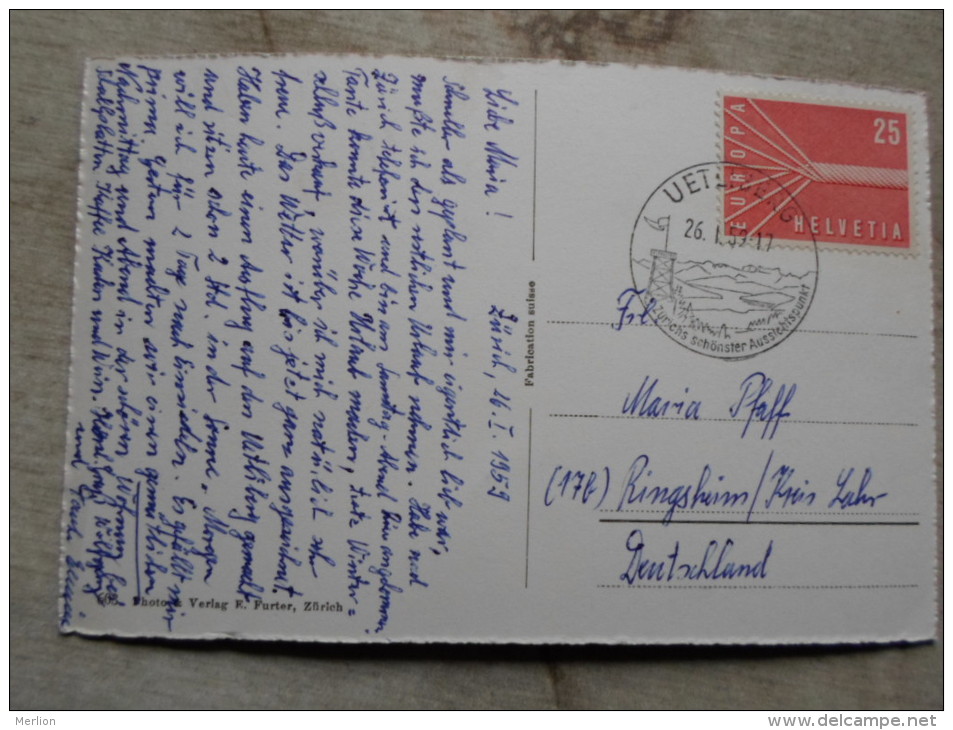 Liebe Maria!
Zürich, 26.I.1959
Schneller als geplant und mir eigentlich lieb war,
mußte ich den restlichen Urlaub nehmen. Habe nach
Zürich telefoniert und bin am Samstag-Abend hier angekommen.
Tante konnte diese Woche Urlaub machen, hatte Winter=
freu. Das Wetter ist bis jetzt ganz ausgezeichnet.
Haben heute einen Ausflug auf den Ütliberg gemacht
und sitzen schon 2 Std. in der Sonne. Morgen
will ich für 2 Tage nach Einsiedeln. Es gefällt mir
prima, gestern machten wir einen gemütlichen
Nachmittag und Abend in der schönen Wohnung bei
Schallplatten, Kaffee, Kuchen und Wein.
Fabrication suisse
Photo u. Verlag E. Furter, Zürich
EUROPA
25
HELVETIA
UETLIBERG
26. I. 59-17
Zürichs schönster Aussichtspunkt
Frl.
Maria Pfaff
(17b) Ringsheim/Kreis Lahr
Deutschland
Merlion